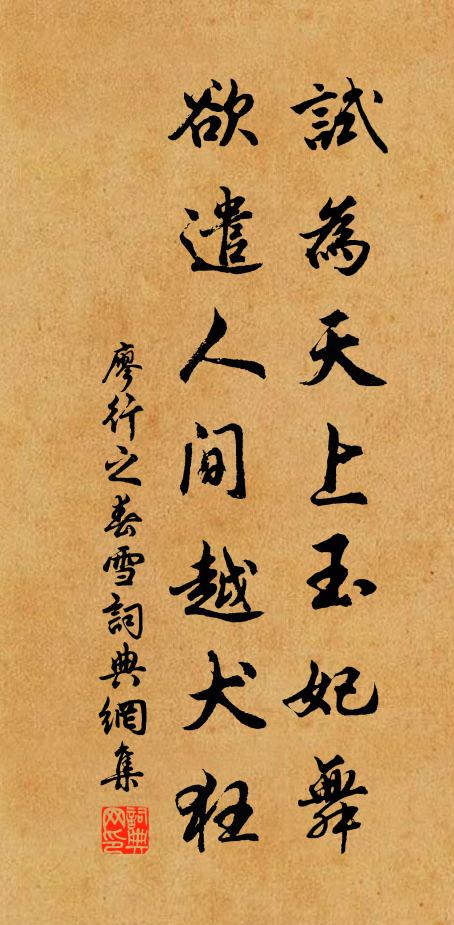 試為天上玉妃舞
欲遣人間越犬狂
廖行之春雪詞典網集
詞典网印